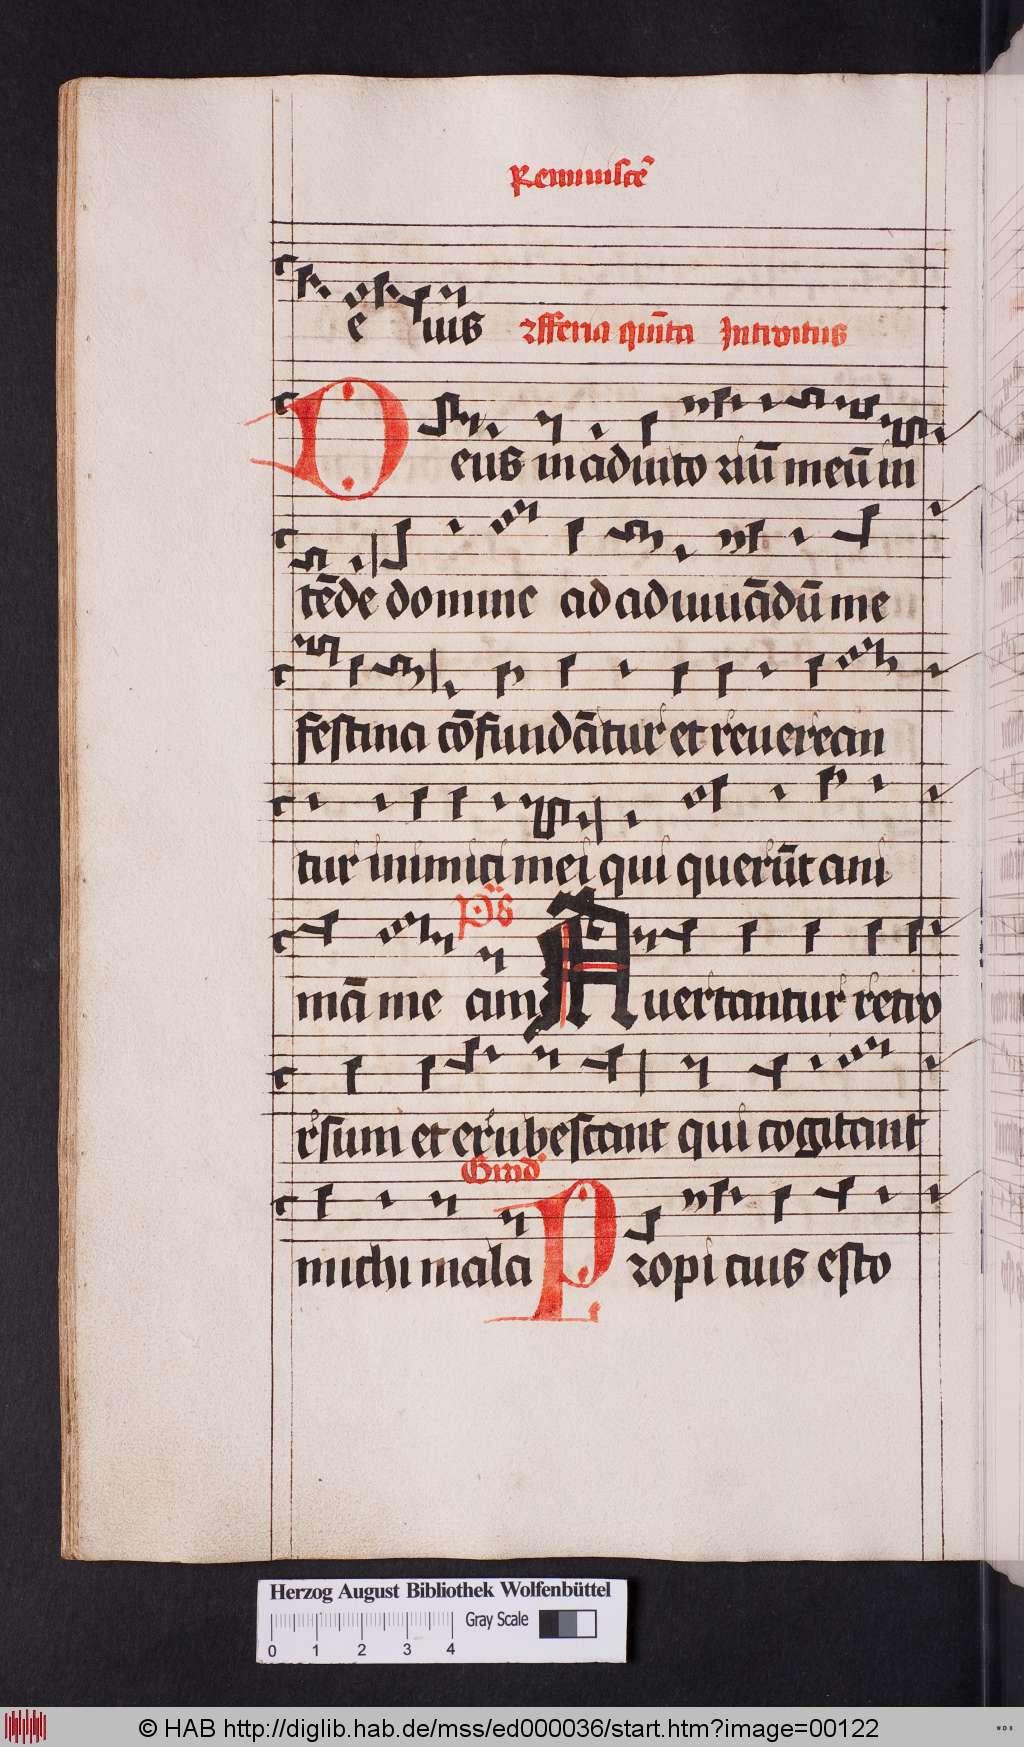 Reminiscē
e ius ꝛ fferia quīta Introitus
Deus in adiuto riū meū in
tēde domine ad adiuuādū me
festina cōfundātur et reuerean
tur inimici mei qui querūt ani
Ps
mā me am Auertantur retro
rsum et erubescant qui cogitant
Grad
michi mala Propi cius esto
Herzog August Bibliothek Wolfenbüttel
Gray Scale
0 1 2 3 4
© HAB http://diglib.hab.de/mss/ed000036/start.htm?image=00122